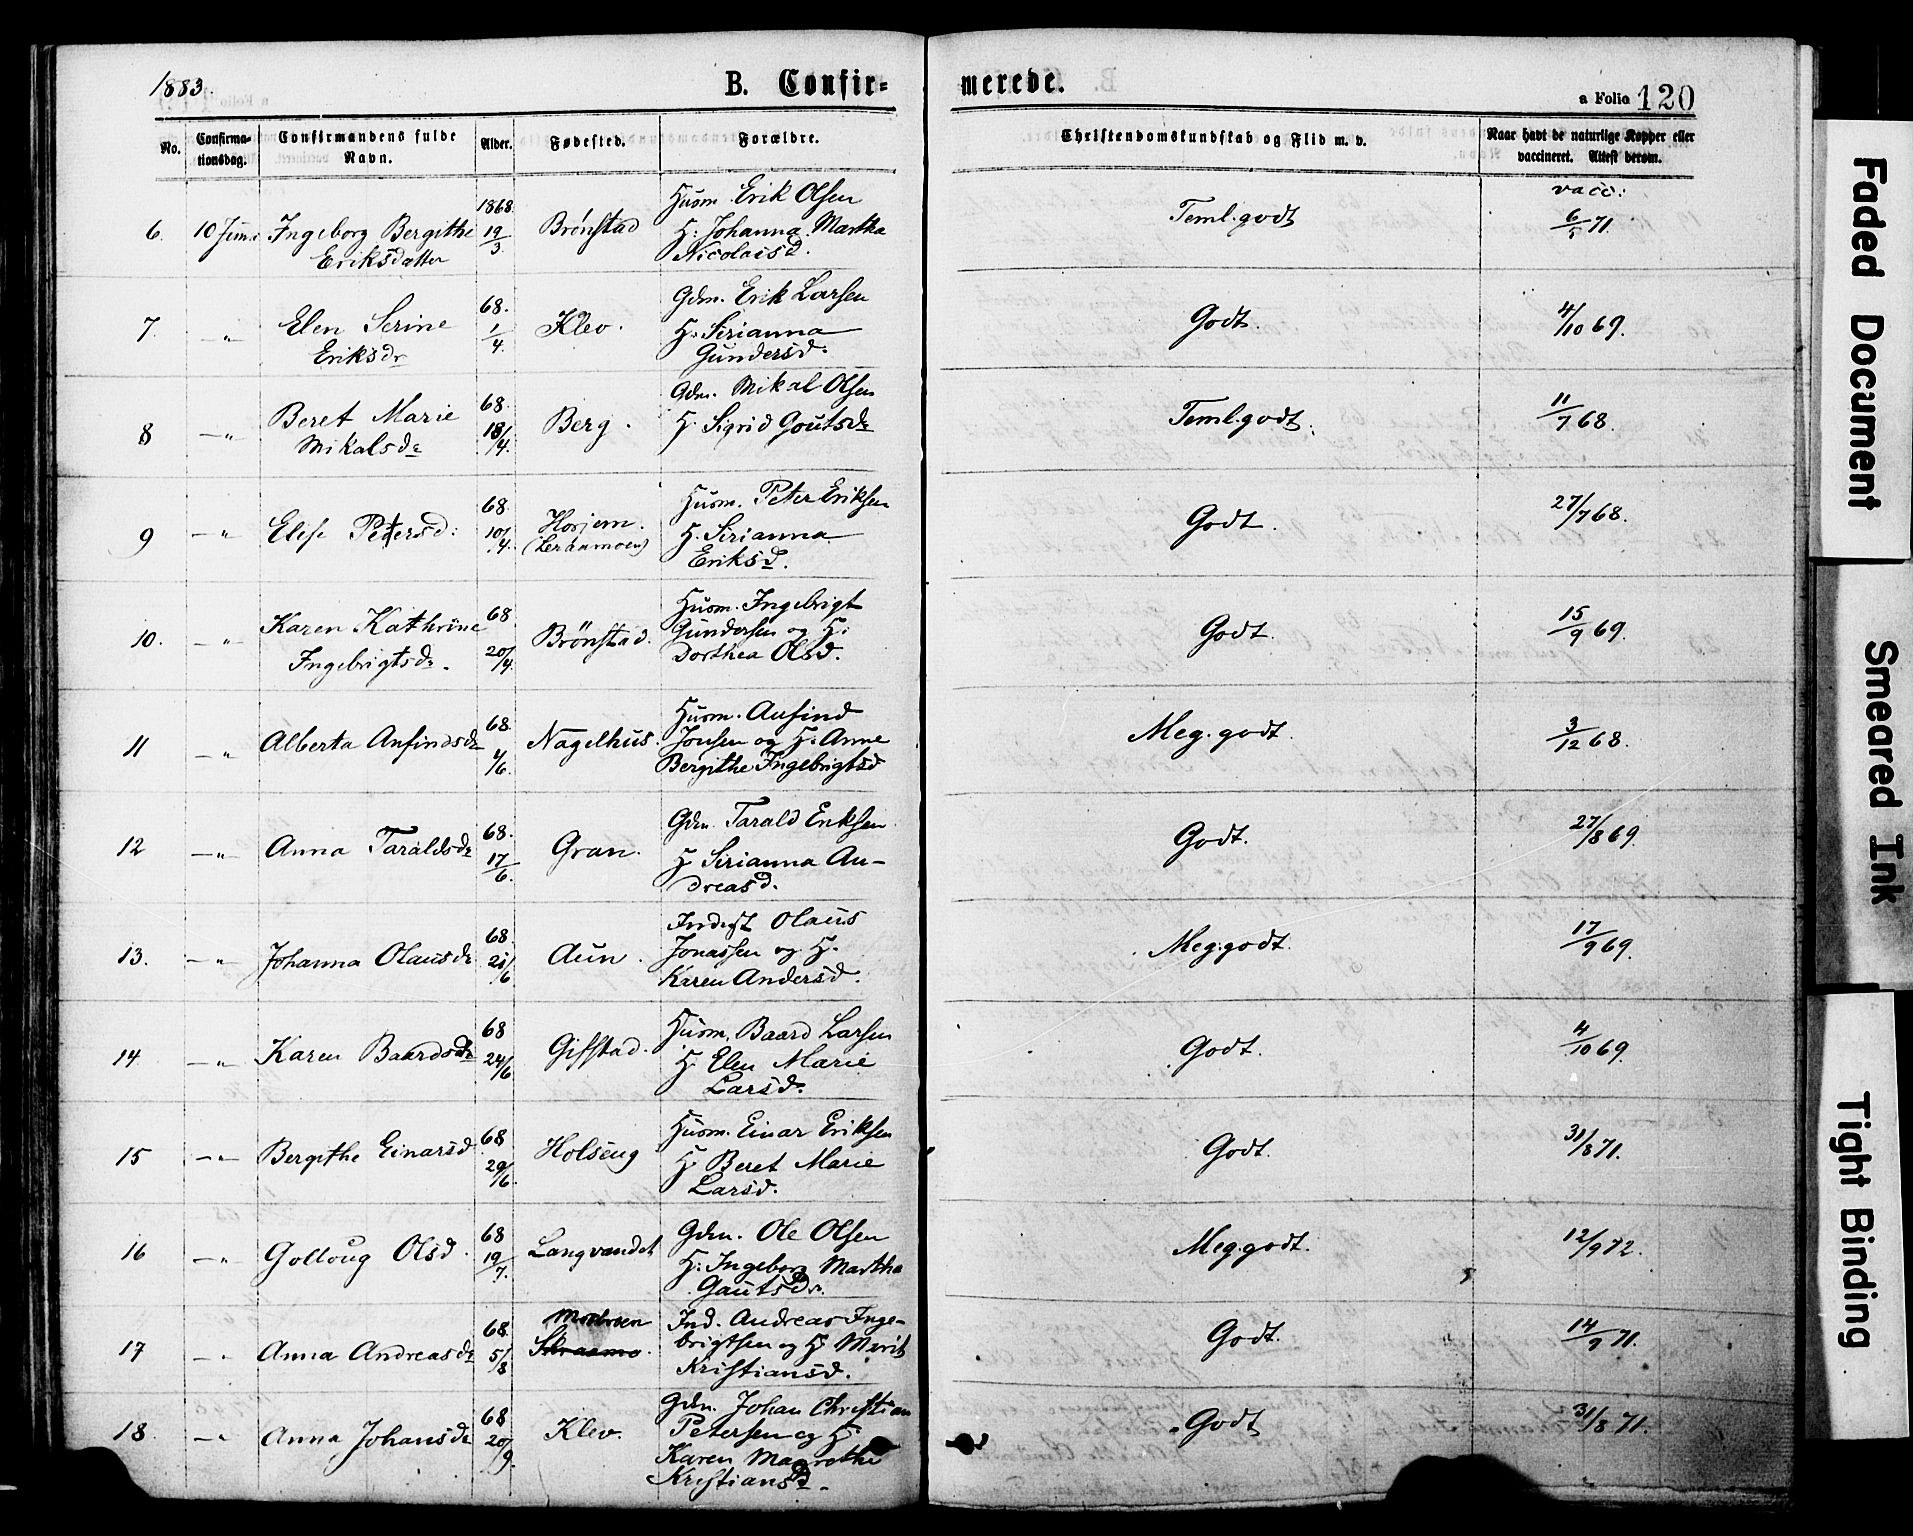 1883.
B. Confir-
merede.
a Folio 120
No.
Confirma-
tionsdag.
Confirmandens fulde
Navn.
Alder.
Fødested.
Forældre.
Christendomskundskab og Flid m. v.
Naar havt de naturlige Kopper eller
vaccineret. Attest derom.
6. 10 Juni Ingeborg Bergithe
Eriksdatter
1868.
19/3.
Brønstad
Husm. Erik Olsen
H: Johanna Martha
Nicolaisd.
Teml. godt
vacc:
6/5 71.
7. —„— Elen Serine
Eriksdr
68.
1/4.
Klev.
Gdm. Erik Larsen
H: Sirianna
Gundersd.
Godt.
4/10 69.
8 —„— Beret Marie
Mikalsdr
68.
18/4.
Berg.
Gdm. Mikal Olsen
H. Sigrid Goutsdr
Teml. godt.
11/7 68.
9 —„ Elise Petersd:
68.
10/4.
Horjem.
(Leraamoen)
Husm. Peter Eriksen
H. Sirianna
Eriksd.
Godt.
27/7 68.
10. —„ Karen Kathrine
Ingebrigtsdr.
68.
20/4.
Brønstad.
Husm. Ingebrigt
Gundersen og H:
Dorthea Olsd.
Godt.
15/9 69.
11 —„ Alberta Anfindsdr
68.
4/6.
Nagelhus.
Husm. Anfind
Jonsen og H: Anne
Bergithe Ingebrigtsd
Meg. godt.
3/12 68.
12 —„— Anna Taraldsdr
68.
17/6.
Gran.
Gdm. Tarald Eriksen
H Sirianna An-
dreasd.
Godt.
27/8 69.
13. —„ Johanna Olausdr
68.
21/6
Aun.
Inderst Olaus
Jonassen og H.
Karen Andersd.
Meg. godt.
17/9 69.
14 —„ Karen Baardsdr
68
24/6
Gifstad.
Husm. Baard Larsen
H. Elen Marie
Larsd.
Godt.
4/10 69.
15 —„ Bergithe Einarsd
68.
29/6.
Holseng
Husm. Einar Eriksen
H. Beret Marie
Larsd.
Godt.
31/8 71.
16 —„ Golloug Olsd.
68
19/7.
Langvandet
Gdm. Ole Olsen
H. Ingeborg Martha
Gautsdr.
Meg. godt.
12/9 72.
17 —„ Anna Andreasdr
68.
5/8
Ind. Andreas Inge-
brigtsen og H. Merit
Kristiansd.
Godt.
14/9 71.
18. —„ Anna Johansdr
68
20/9.
Klev.
Gdm. Johan Christian
Petersen og H.
Karen Magrethe
Kristiansdr.
Godt
31/8 71.
Faded Document
Smeared Ink
Tight Binding